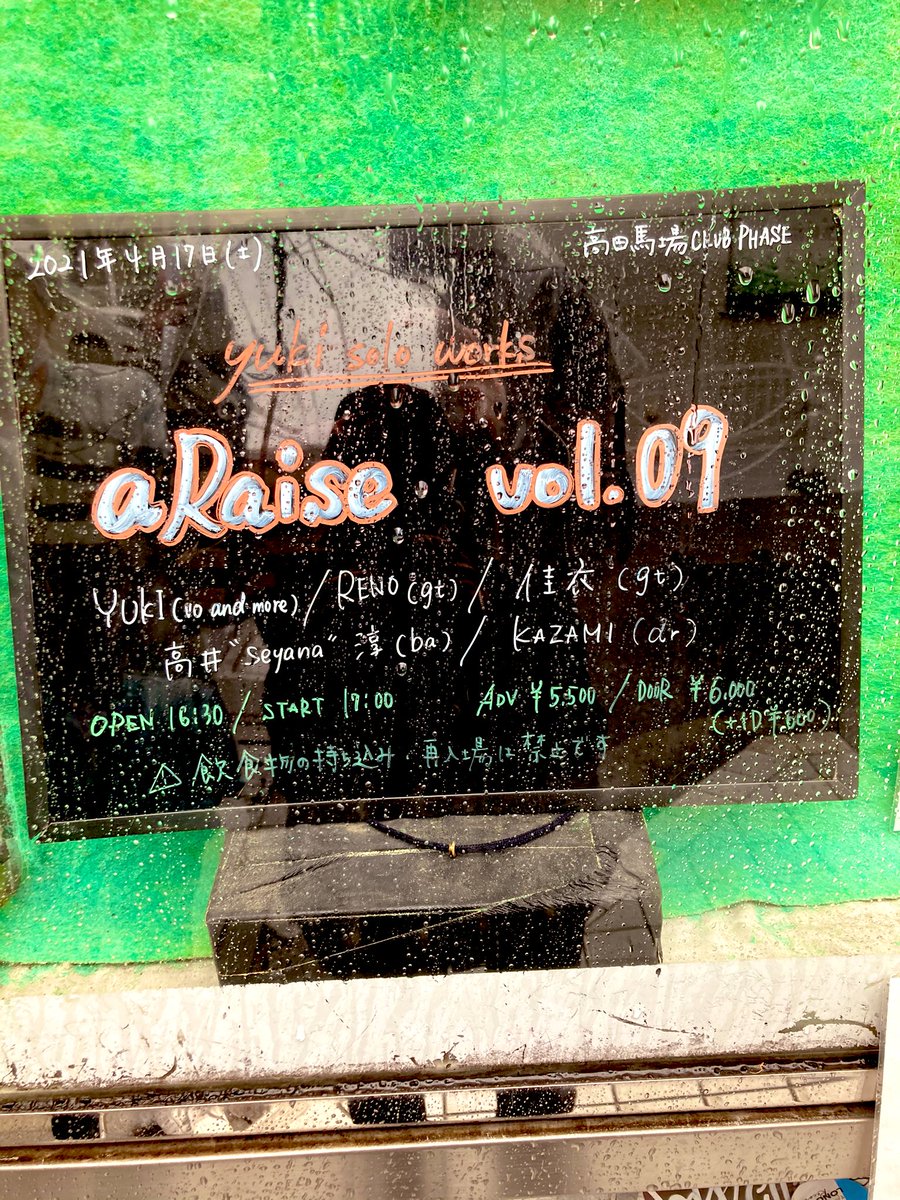 2021年4月17日(土)
高田馬場CLUB PHASE
yuki solo works
aRaise vol.09
YUKI(vo and more)/RENO(gt)/佳衣(gt)
高井"seyana"淳(ba)/KAZAMI(dr)
OPEN 16:30/START 17:00 ADV ¥5.500/DOOR ¥6.000
(+1D¥600)
⚠飲食物の持ち込み・再入場は禁止です